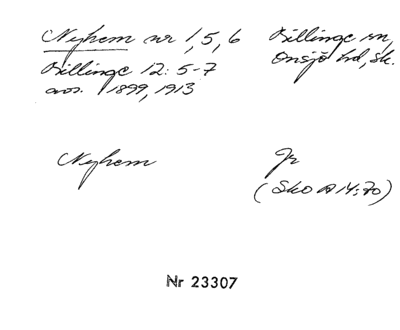 Nyhem nr 1, 5, 6
Billinge 12: 5-7
avs. 1899, 1913
Billinge sn,
Onsjö hd, Sk.
Nyhem
Jr
(Sko A 14:70)
Nr 23307